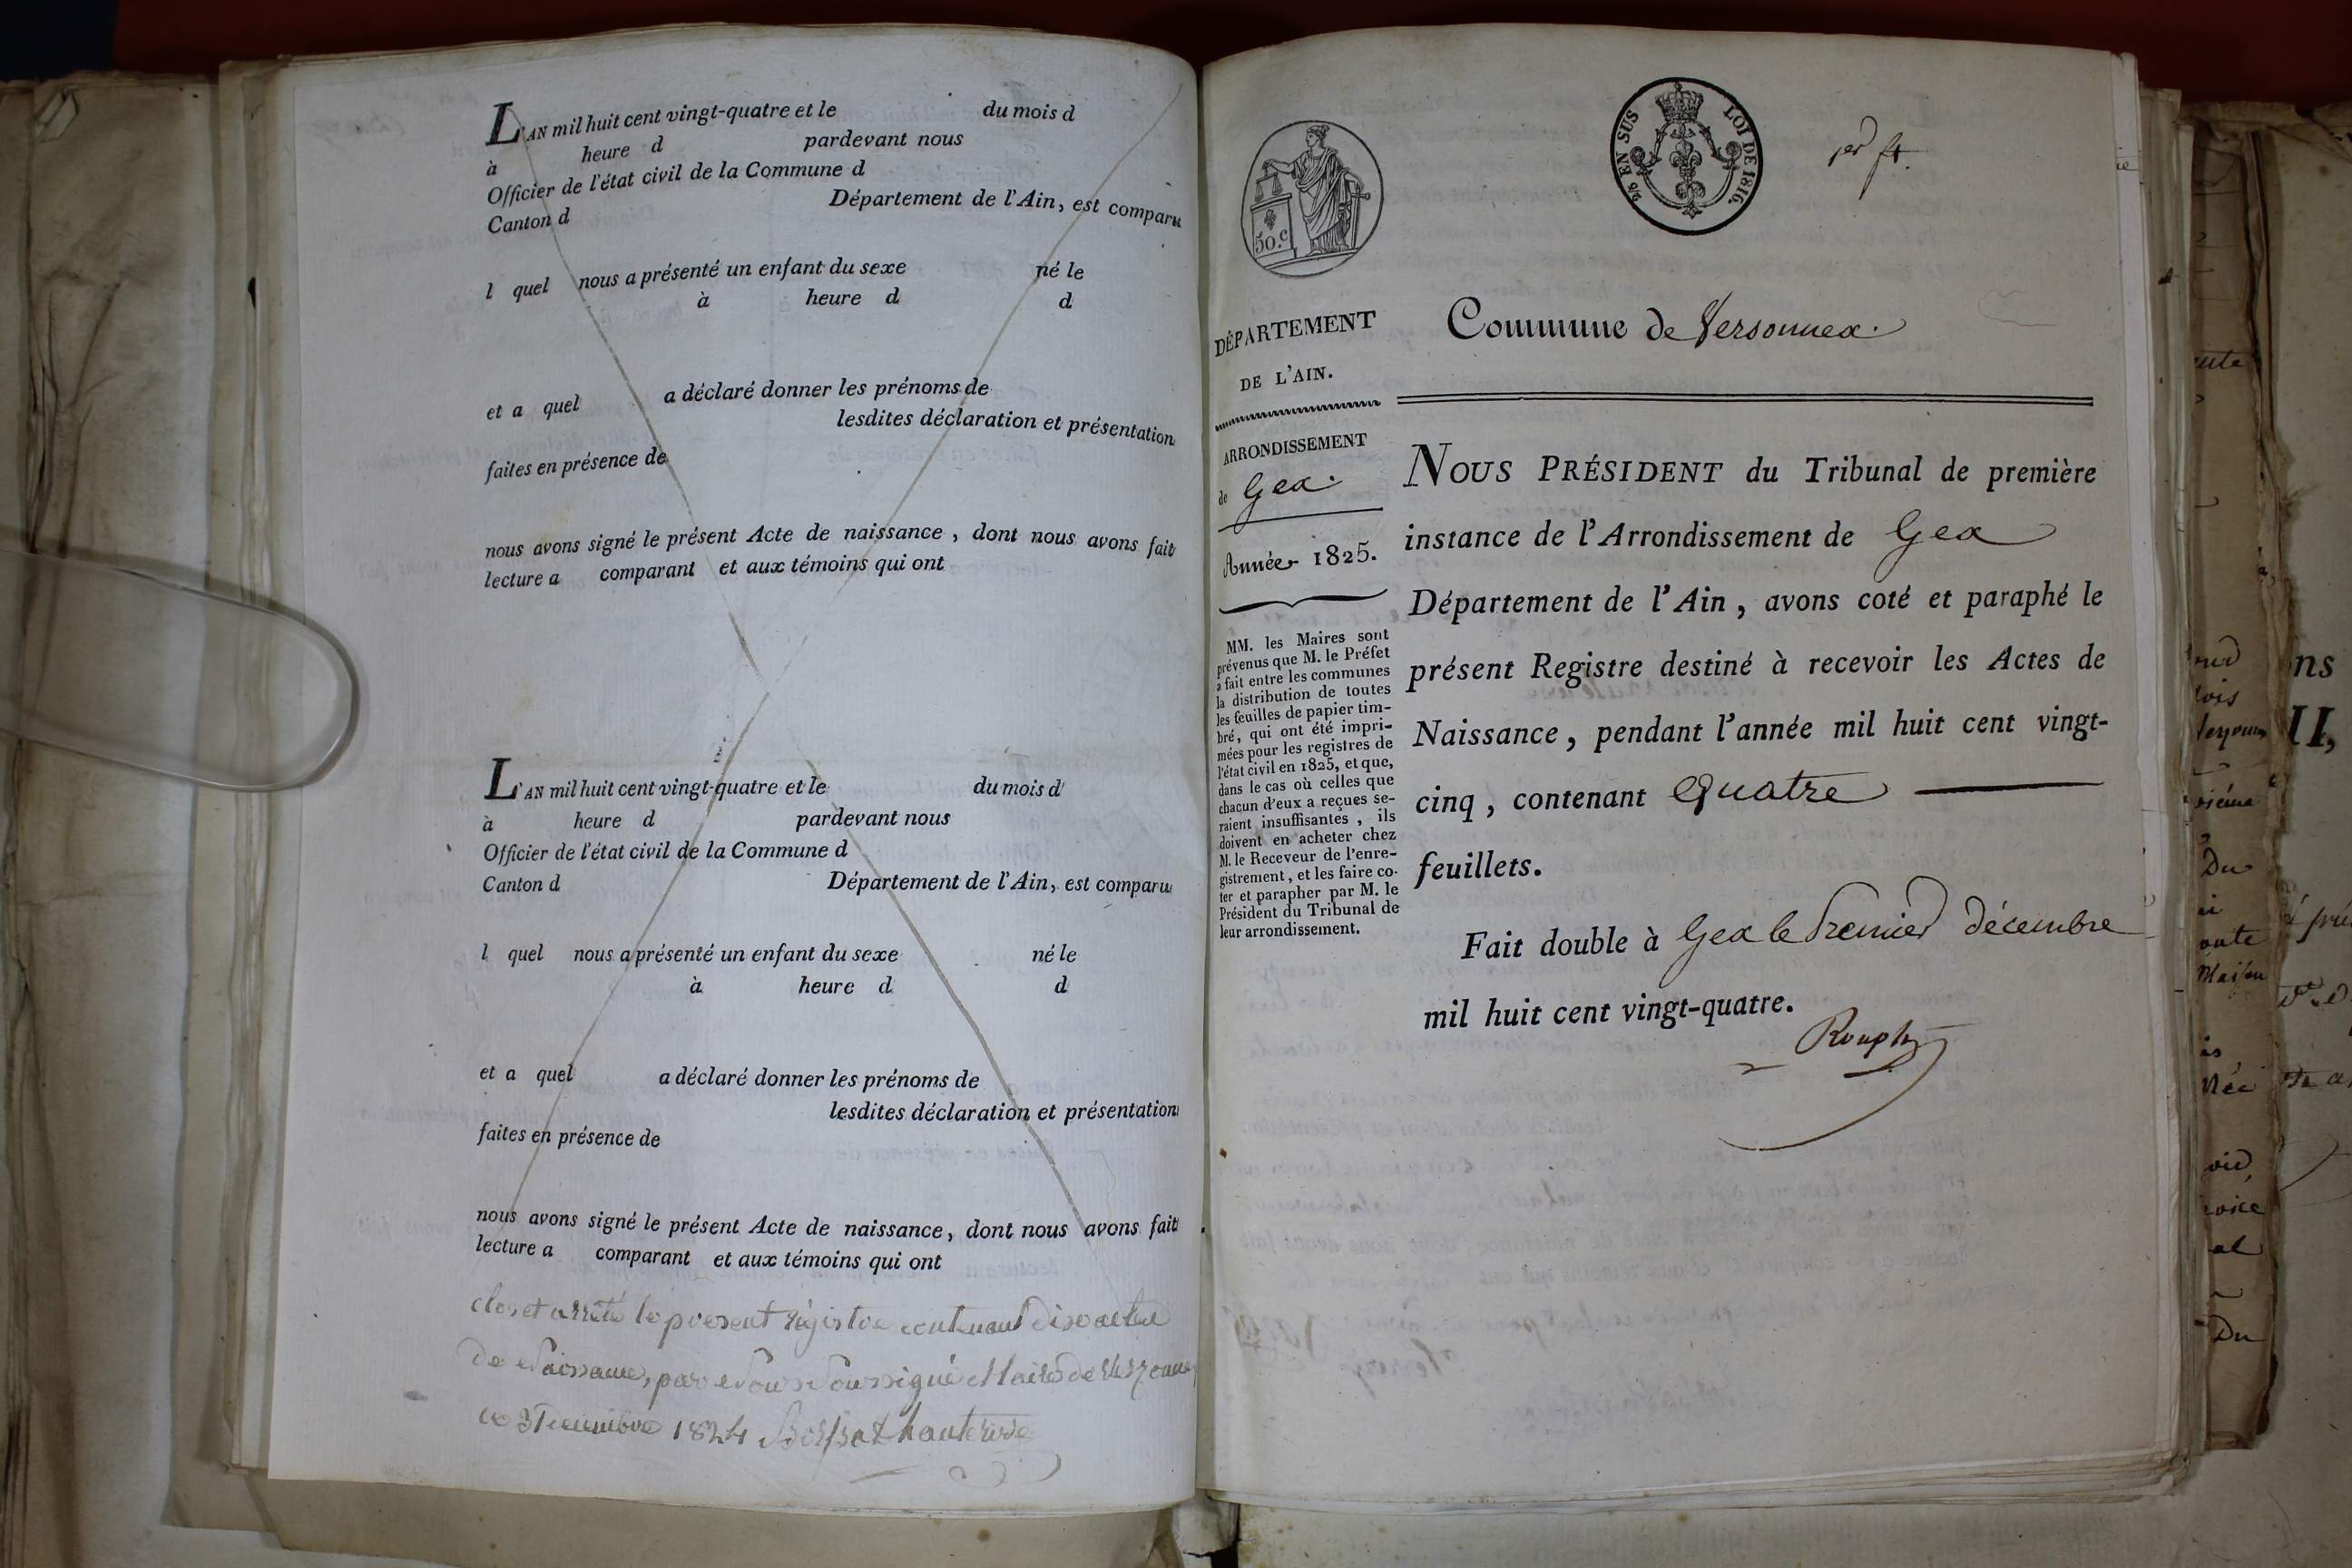 L'AN mil huit cent vingt-quatre et le du mois d
à heure d pardevant nous
Officier de l'état civil de la Commune d
Canton d Département de l'Ain, est comparu
l quel nous a présenté un enfant du sexe né le
à heure d d
et a quel a déclaré donner les prénoms de
lesdites déclaration et présentation
faites en présence de
nous avons signé le présent Acte de naissance, dont nous avons fait
lecture a comparant et aux témoins qui ont
L'AN mil huit cent vingt-quatre et le du mois d
à heure d pardevant nous
Officier de l'état civil de la Commune d
Canton d Département de l'Ain, est comparu
l quel nous a présenté un enfant du sexe né le
à heure d d
et a quel a déclaré donner les prénoms de
lesdites déclaration et présentation
faites en présence de
nous avons signé le présent Acte de naissance, dont nous avons fait
lecture a comparant et aux témoins qui ont
clos et arrêté le présent régistre contenant
de Naissance, par Nous Soussigné Maire de
ce 31 Décembre 1824
50.c
EN SUS LOI DE 1816.
1er ft.
DÉPARTEMENT
DE L'AIN.
ARRONDISSEMENT
de Gex.
Année 1825.
MM. les Maires sont
prévenus que M. le Préfet
a fait entre les communes
la distribution de toutes
les feuilles de papier tim-
bré, qui ont été impri-
mées pour les registres de
l'état civil en 1825, et que,
dans le cas où celles que
chacun d'eux a reçues se-
raient insuffisantes, ils
doivent en acheter chez
M. le Receveur de l'enre-
gistrement, et les faire co-
ter et parapher par M. le
Président du Tribunal de
leur arrondissement.
Commune de Versonnex.
NOUS PRÉSIDENT du Tribunal de première
instance de l'Arrondissement de Gex
Département de l'Ain, avons coté et paraphé le
présent Registre destiné à recevoir les Actes de
Naissance, pendant l'année mil huit cent vingt-
cinq, contenant Quatre
feuillets.
Fait double à Gex le Premier décembre
mil huit cent vingt-quatre.
Rouph